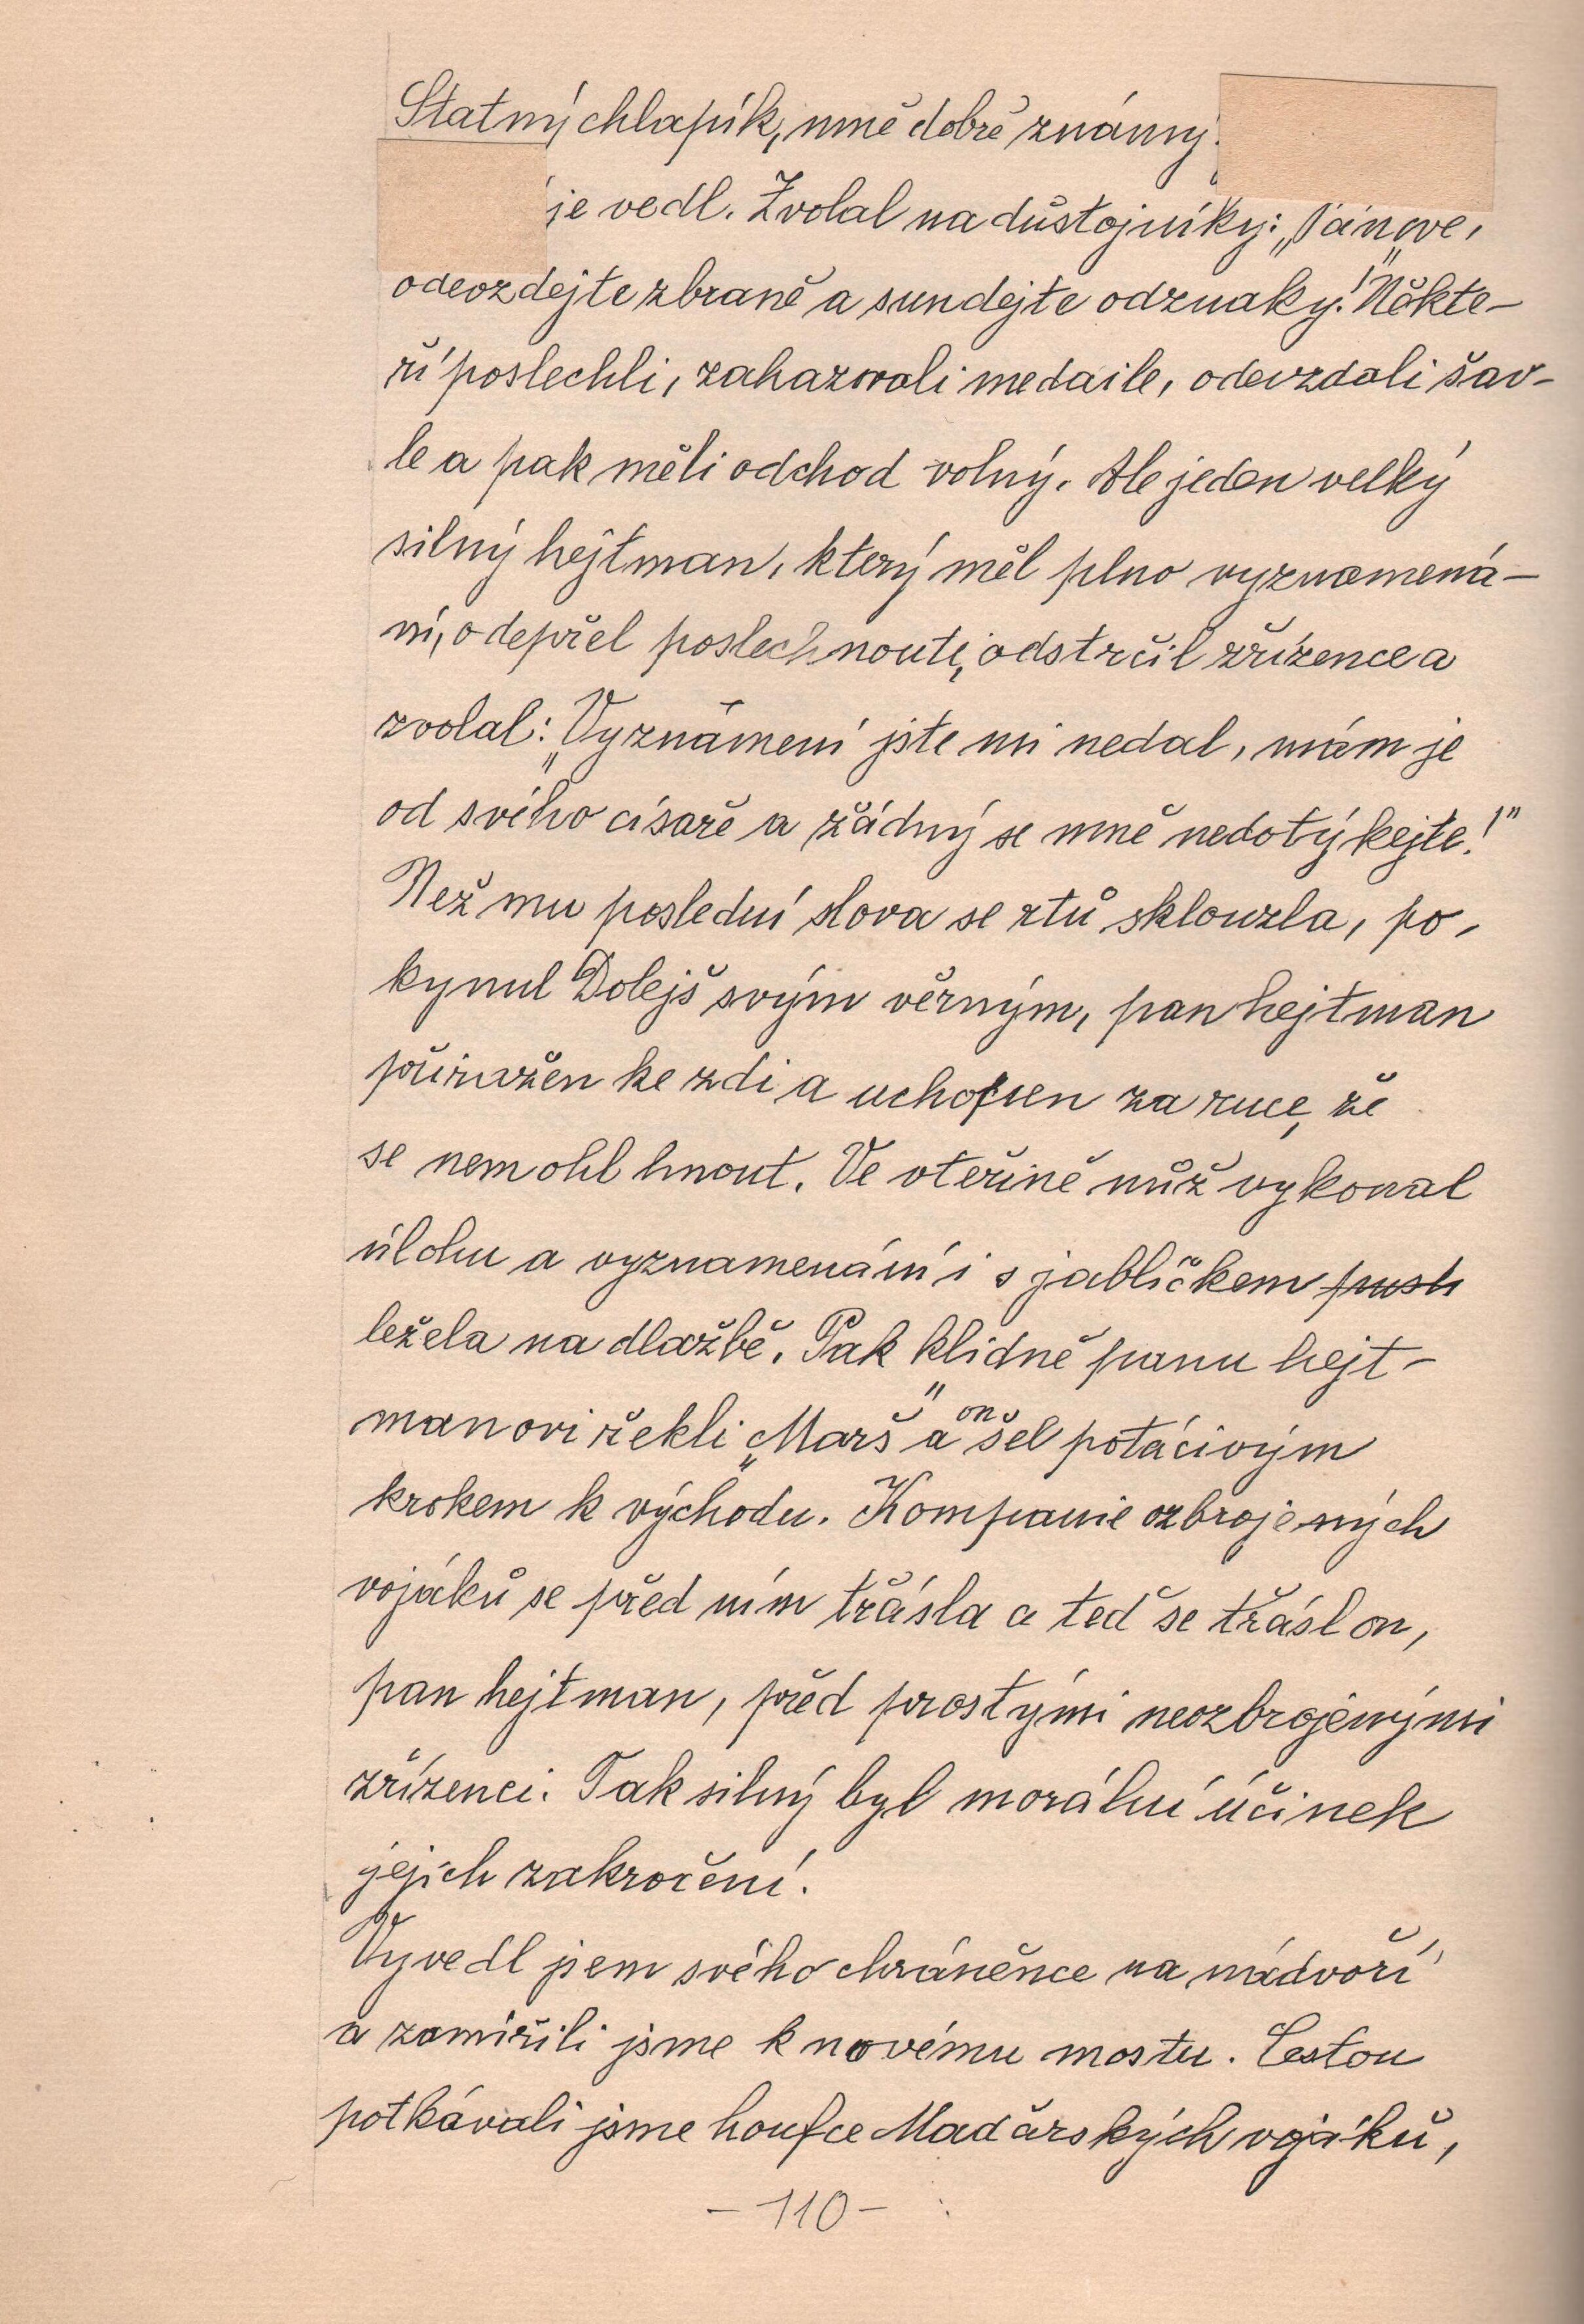 Statný chlapík, mně dobře známý
je vedl. Zvolal na důstojníky: „Pánove,
odevzdejte zbraně a sundejte odznaky!" Někte-
ří poslechli, zahazovali medaile, odevzdali šav-
le a pak měli odchod volný. Ale jeden velký
silný hejtman, který měl plno vyznamená-
ní, odepřel poslechnouti, odstrčil zřízence a
zvolal: „Vyznámení jste mi nedal, mám je
od svého císaře a žádný se mně nedotýkejte!"
Než mu poslední slova se rtů sklouzla, po-
kynul Dolejš svým věrným, pan hejtman
přiražen ke zdi a uchopen za ruce, že
se nemohl hnout. Ve vteřině nůž vykonal
úlohu a vyznamenání i s jablíčkem pusti
ležela na dlažbě. Pak klidně panu hejt-
manovi řekli „Marš" a on šel potácivým
krokem k východu. Kompanie ozbrojených
vojáků se před ním třásla a teď se třásl on,
pan hejtman, před prostými neozbrojenými
zřízenci. Tak silný byl morální účinek
jejich zakročení.
Vyvedl jsem svého chráněnce na nádvoří
a zamířili jsme k novému mostu. Cestou
potkávali jsme houfce Maďarských vojáků,
- 110 -